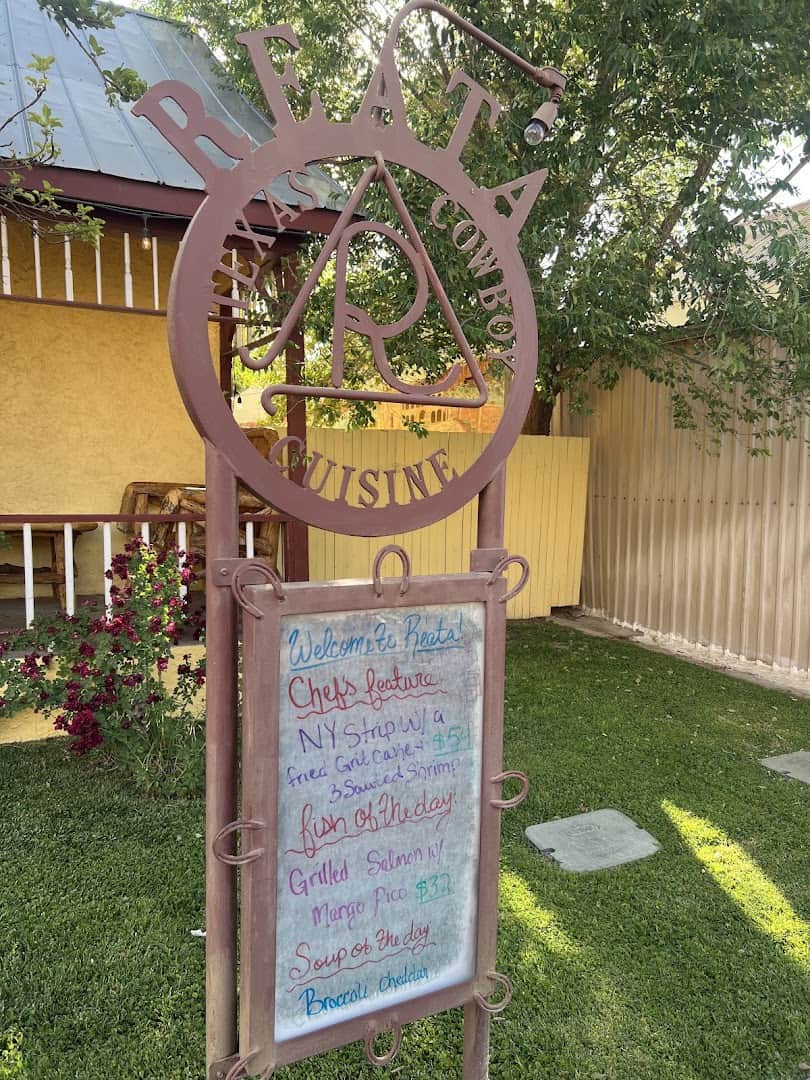 REATA
TEXAS COWBOY
R
CUISINE
Welcome to Reata!
Chefs feature
NY Strip w/ a
fried Grit Cake +
3 Sauced Shrimp
fish of the day:
Grilled Salmon w/
Mango Pico $32
Soup of the day
Broccoli cheddar